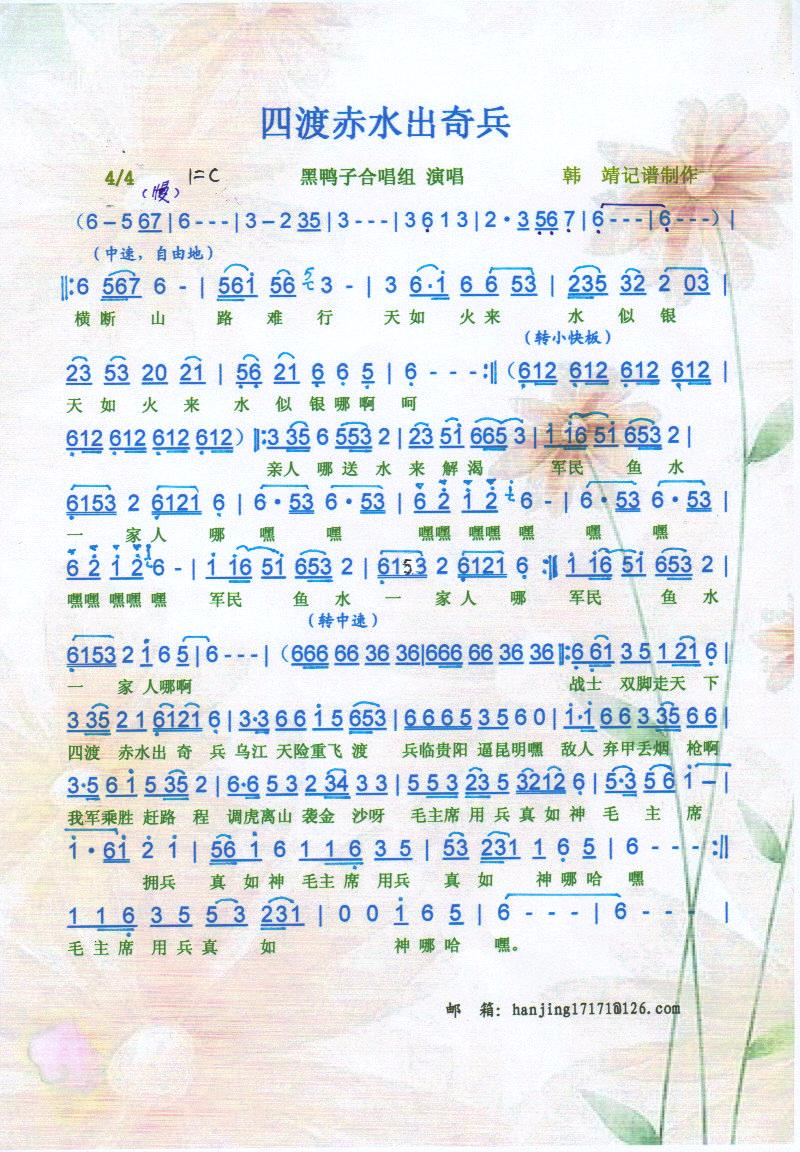 四渡赤水出奇兵
4/4 （慢） 1=C 黑鸭子合唱组 演唱 韩 靖记谱制作
（6 – 5 67 | 6 - - - | 3 – 2 35 | 3 - - - | 3 6 1 3 | 2 · 3 56 7 | 6 - - - | 6 - - - ）|
（中速，自由地）
‖: 6 567 6 - | 561 56 3 - | 3 6·1 6 6 53 | 235 32 2 03 |
横 断 山 路 难 行 天 如 火 来 水 似 银
（转小快板）
23 53 20 21 | 56 21 6 6 5 | 6 - - - :‖（612 612 612 612 |
天 如 火 来 水 似 银 哪 啊 呵
612 612 612 612）‖: 3 35 6 553 2 | 23 51 665 3 | 1 16 51 653 2 |
亲人 哪 送 水 来 解 渴 军民 鱼 水
6153 2 6121 6 | 6·53 6·53 | 6 2 1 2 6 - | 6·53 6·53 |
一 家 人 哪 嘿 嘿 嘿嘿 嘿嘿 嘿 嘿 嘿
6 2 1 2 6 - | 1 16 51 653 2 | 6153 2 6121 6 :‖ 1 16 51 653 2 |
嘿嘿 嘿嘿 嘿 军民 鱼 水 一 家 人 哪 军民 鱼 水
（转中速）
6153 2 1 6 5 | 6 - - - |（666 66 36 36 |666 66 36 36 ‖: 6 61 3 5 1 21 6 |
一 家 人哪啊 战士 双脚走天 下
3 35 2 1 6121 6 | 3·3 6 6 1 5 653 | 6 6 6 5 3 5 6 0 | 1·1 6 6 3 35 6 6 |
四渡 赤水出 奇 兵 乌江 天险重飞 渡 兵临贵阳 逼昆明嘿 敌人 弃甲丢烟 枪啊
3·5 6 1 5 35 2 | 6·6 5 3 2 34 3 3 | 5 5 3 23 5 3212 6 | 5·3 5 6 1 – |
我军乘胜 赶路 程 调虎离山 袭金 沙呀 毛主席 用 兵 真 如 神 毛 主 席
1 · 61 2 1 | 56 1 6 1 1 6 3 5 | 53 231 1 6 5 | 6 - - - :‖
拥兵 真 如神 毛主 席 用兵 真 如 神 哪 哈 嘿
1 1 6 3 5 5 3 231 | 0 0 1 6 5 | 6 - - - | 6 - - - |
毛 主 席 用 兵 真 如 神 哪 哈 嘿。
邮 箱: hanjing171710126.com